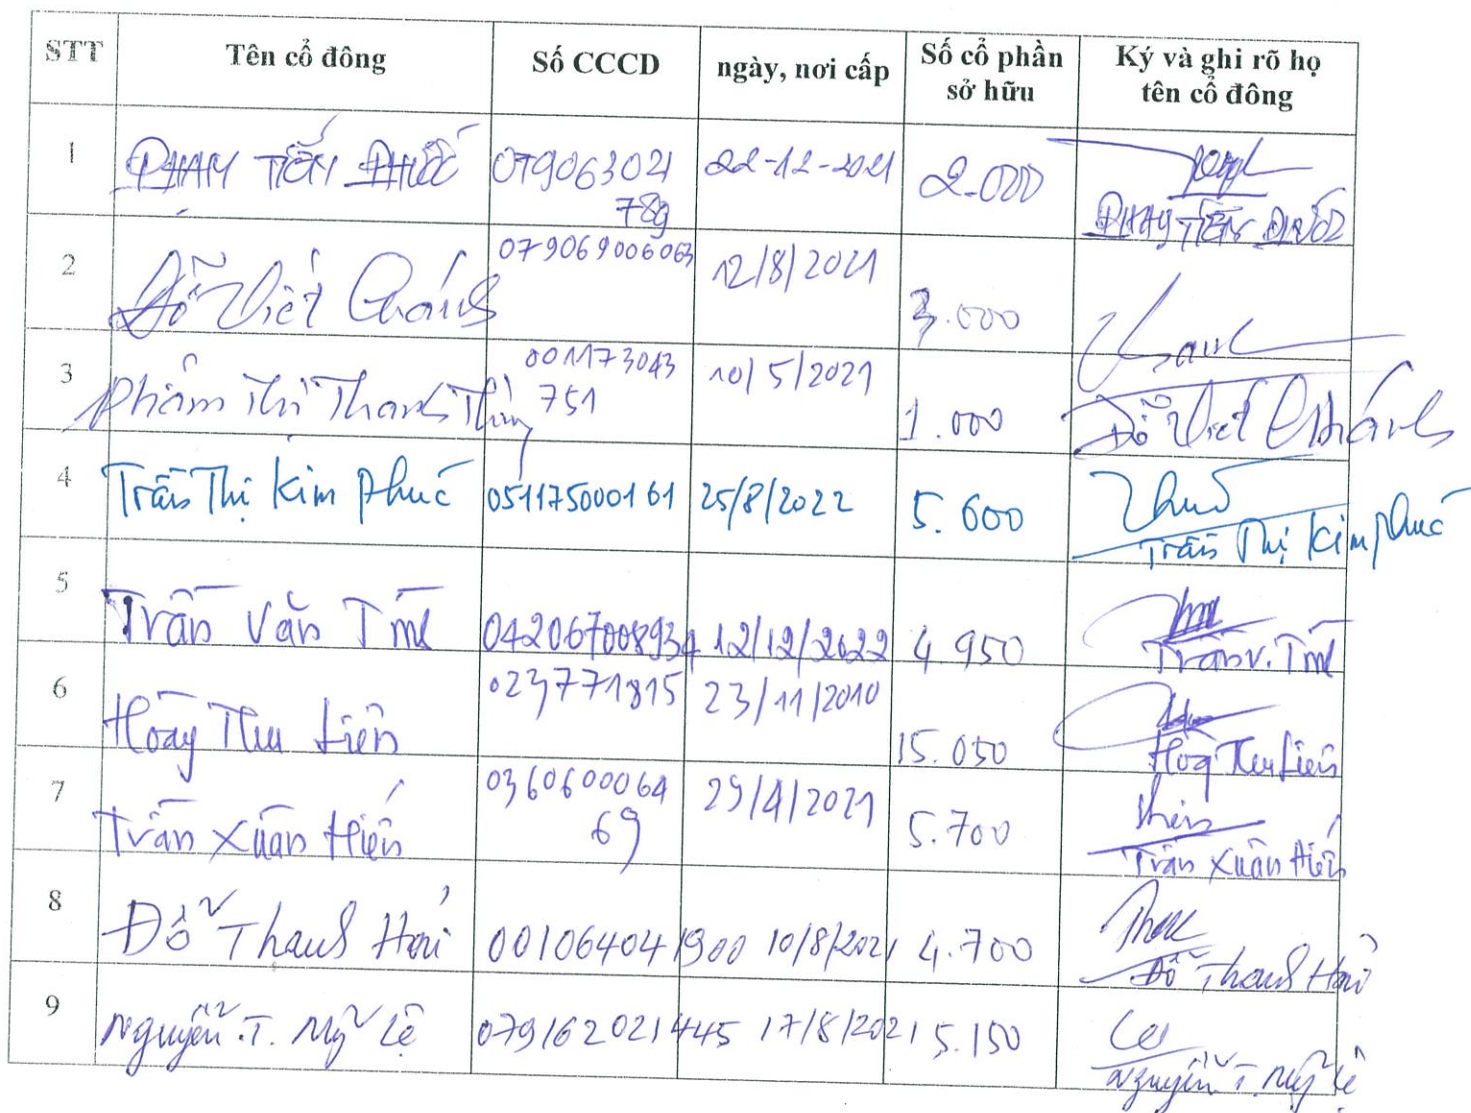 STT Tên cổ đông Số CCCD ngày, nơi cấp Số cổ phần sở hữu Ký và ghi rõ họ tên cổ đông
1 PHẠM TIẾN PHƯỚC 079063021 22-12-2021 2.000
789 PHẠM TIẾN PHƯỚC
2 Đỗ Viết Khánh 079069006063 12/8/2021 3.000 Khanh
3 Phạm Thị Thanh Thủy 001173043 10/5/2021 1.000 Đỗ Viết Khánh
751
4 Trần Thị Kim Phúc 051175000161 25/8/2022 5.600 Phuc
Trần Thị Kim Phúc
5 Trần Văn 042067008934 12/12/2022 4.950
Trần V.
6 Hoàng Thu Liên 023771815 23/11/2010 15.050
Hoàng Thu Liên
7 Trần Xuân Hiến 0360600064 29/4/2021 5.700 Hiến
69 Trần Xuân Hiến
8 Đỗ Thanh Hải 001064041900 10/8/2021 4.700
Đỗ Thanh Hải
9 Nguyễn.T. Mỹ Lệ 079162021445 17/8/2021 5.150 Le
Nguyễn.T. Mỹ Lệ